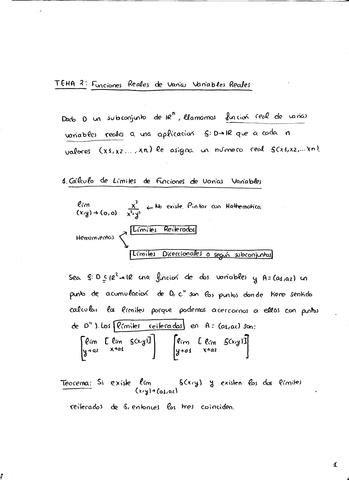 TEMA 2: Funciones Reales de Varias Variables Reales
Dado D un subconjunto de ℝⁿ, llamamos función real de varias
variables reales a una aplicación f: D→ℝ que a cada n
valores (x1, x2 ..., xn) le asigna un número real f(x1, x2, ... xn).
1. Cálculo de Límites de Funciones de Varias Variables
lim (x,y)→(0,0) x²/(x²+y²) ← No existe. Pintar con Mathematica
Límites Reiterados
Herramientas
Límites Direccionales o según subconjuntos
Sea f: D ⊆ ℝ² → ℝ una función de dos variables y A = (a1, a2) un
punto de acumulación de D. (" son los puntos donde tiene sentido
calcular los límites porque podemos acercarnos a ellos con puntos
de D"). Los límites reiterados en A = (a1, a2) son:
[lim y→a2 [lim x→a1 f(x,y)]] [lim x→a1 [lim y→a2 f(x,y)]]
Teorema: Si existe lim (x,y)→(a1,a2) f(x,y) y existen los dos límites
reiterados de f, entonces los tres coinciden.
1